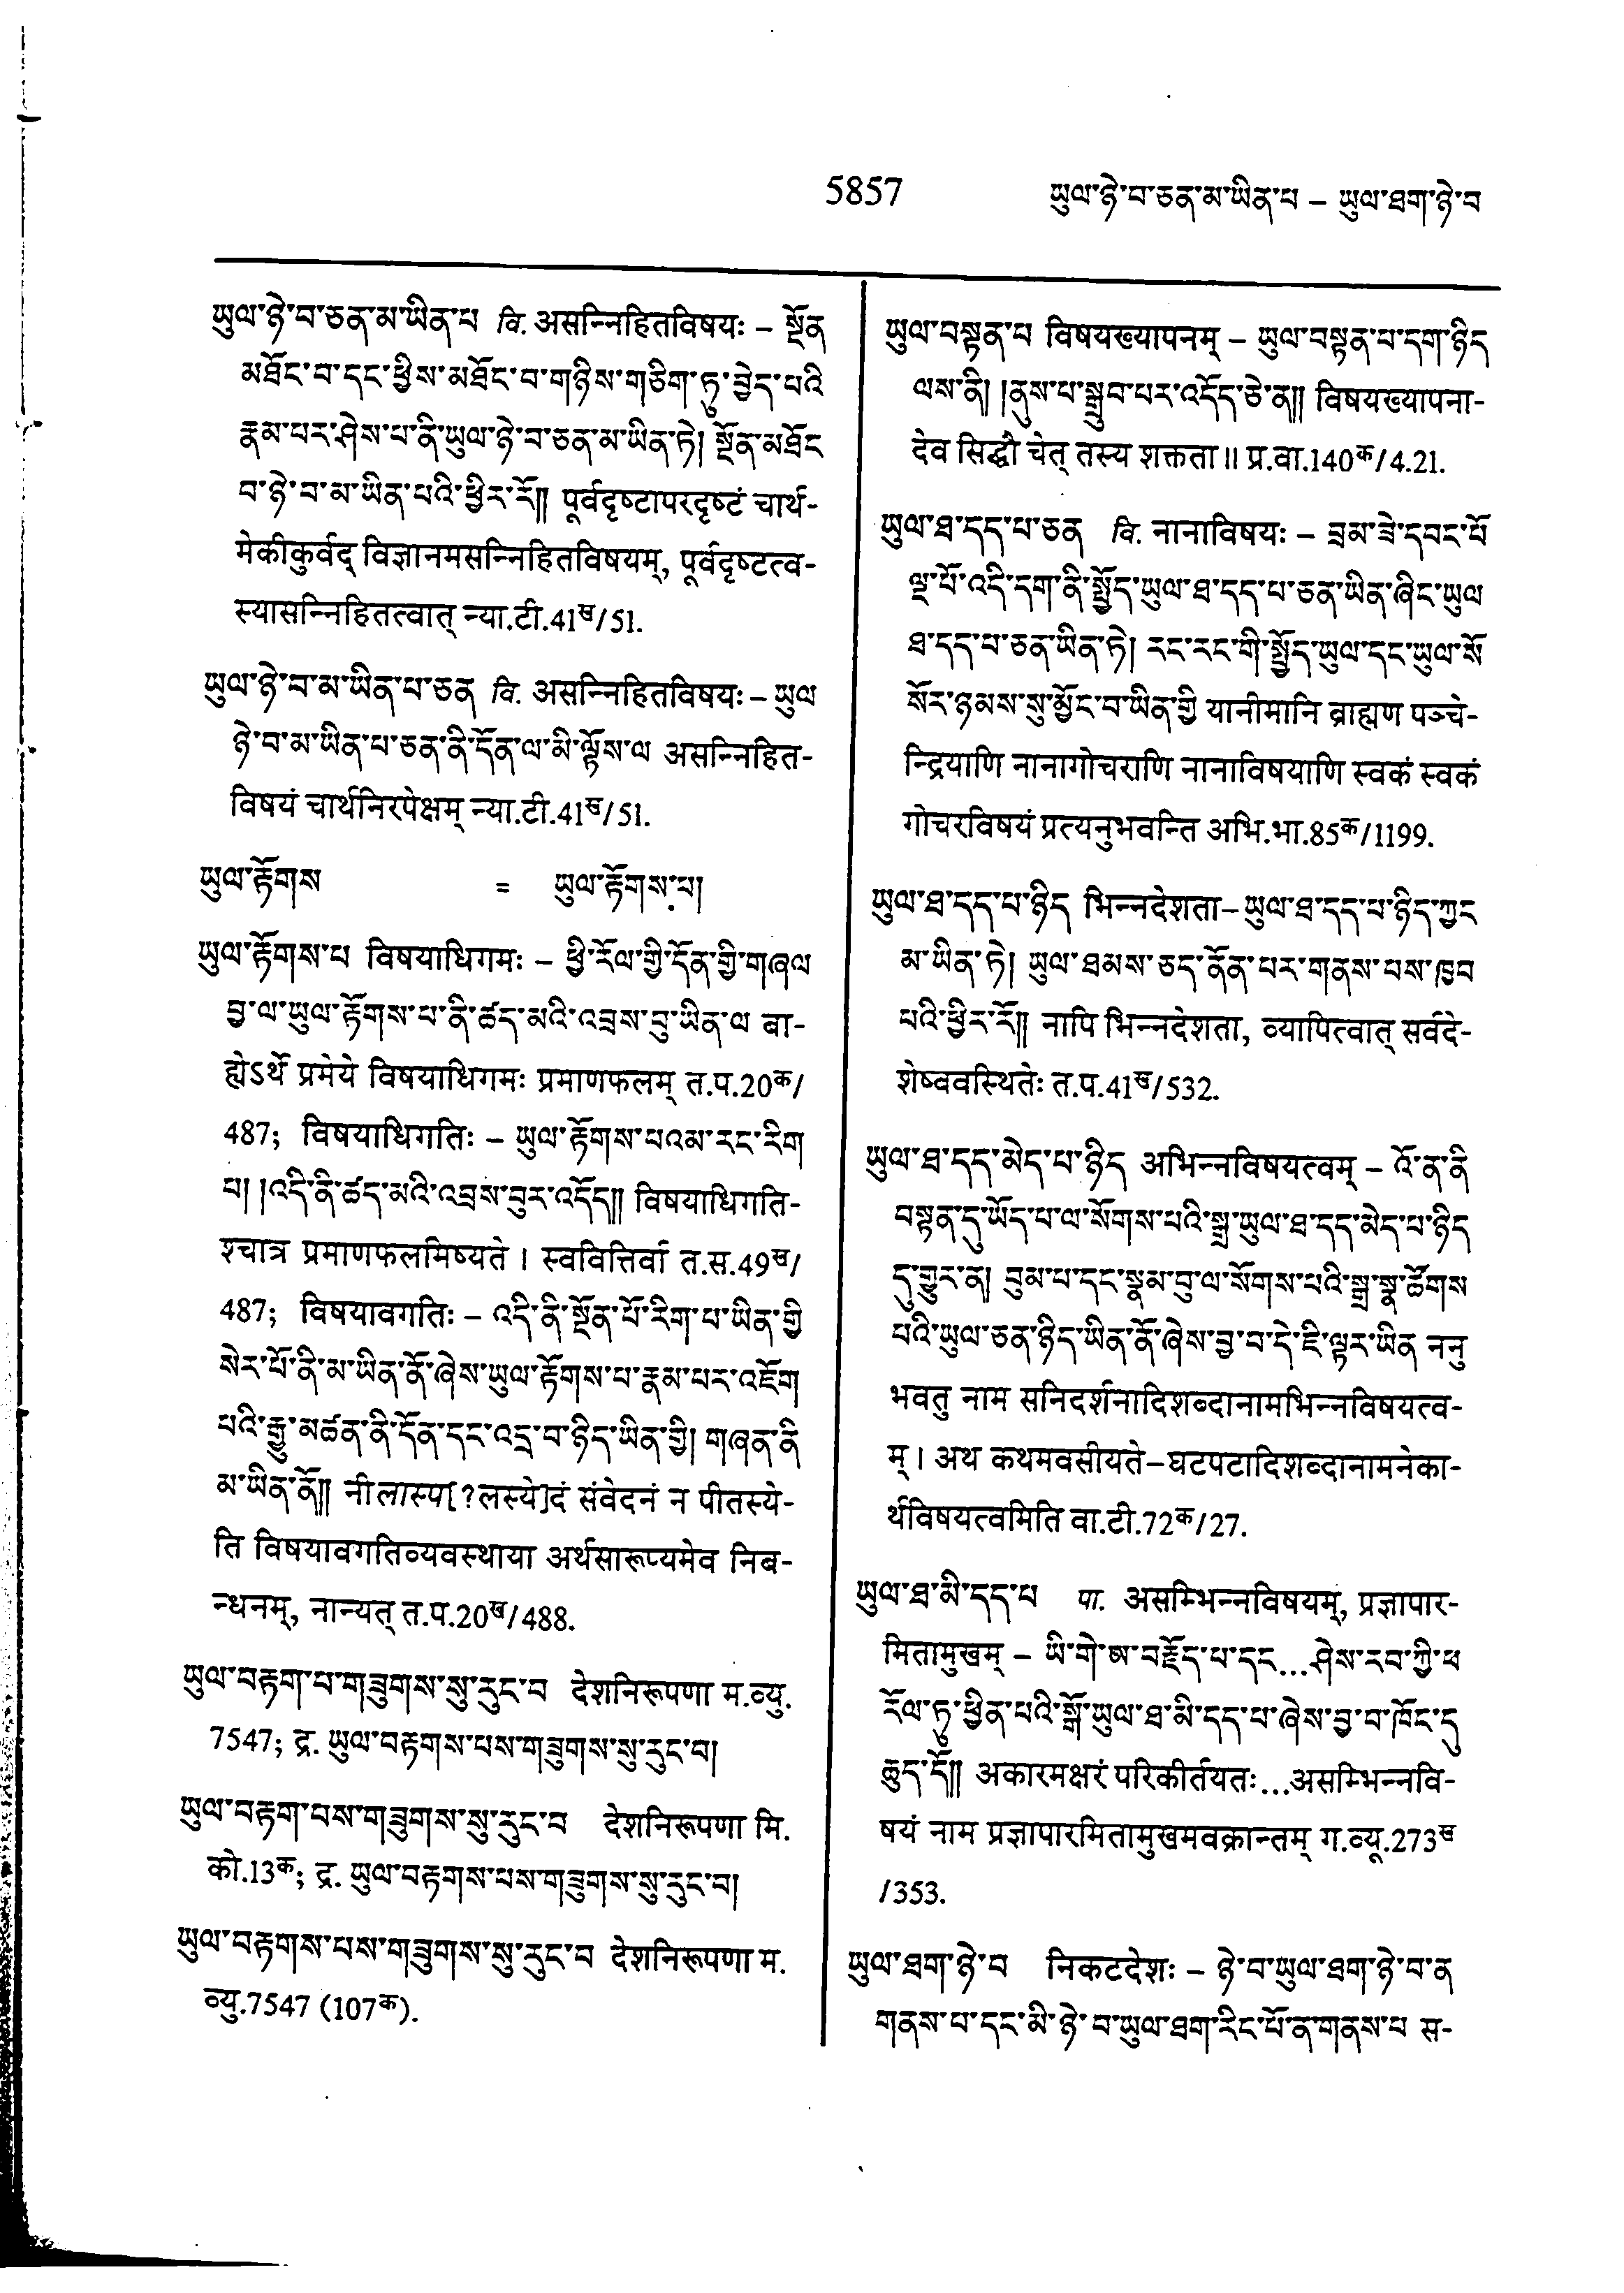 5857 ཡུལ་ཉེ་བ་ཅན་མ་ཡིན་པ – ཡུལ་ཐག་ཉེ་བ
ཡུལ་ཉེ་བ་ཅན་མ་ཡིན་པ वि. असन्निहितविषयः – སྔོན
མཐོང་བ་དང་ཕྱིས་མཐོང་བ་གཉིས་གཅིག་ཏུ་བྱེད་པའི
རྣམ་པར་ཤེས་པ་ནི་ཡུལ་ཉེ་བ་ཅན་མ་ཡིན་ཏེ། སྔོན་མཐོང
བ་ཉེ་བ་མ་ཡིན་པའི་ཕྱིར་རོ།། पूर्वदृष्टापरदृष्टं चार्थ-
मेकीकुर्वद् विज्ञानमसन्निहितविषयम्, पूर्वदृष्टत्व-
स्यासन्निहितत्वात् न्या.टी.41ख/51.
ཡུལ་ཉེ་བ་མ་ཡིན་པ་ཅན वि. असन्निहितविषयः – ཡུལ
ཉེ་བ་མ་ཡིན་པ་ཅན་ནི་དོན་ལ་མི་ལྟོས་ལ असन्निहित-
विषयं चार्थनिरपेक्षम् न्या.टी.41ख/51.
ཡུལ་རྟོགས = ཡུལ་རྟོགས་པ།
ཡུལ་རྟོགས་པ विषयाधिगमः – ཕྱི་རོལ་གྱི་དོན་གྱི་གཞལ
བྱ་ལ་ཡུལ་རྟོགས་པ་ནི་ཚད་མའི་འབྲས་བུ་ཡིན་ལ बा-
ह्येऽर्थे प्रमेये विषयाधिगमः प्रमाणफलम् त.प.20क/
487; विषयाधिगतिः – ཡུལ་རྟོགས་པའམ་རང་རིག
པ། །འདི་ནི་ཚད་མའི་འབྲས་བུར་འདོད།། विषयाधिगति-
श्चात्र प्रमाणफलमिष्यते । स्ववित्तिर्वा त.स.49ख/
487; विषयावगतिः – འདི་ནི་སྔོན་པོ་རིག་པ་ཡིན་གྱི
སེར་པོ་ནི་མ་ཡིན་ནོ་ཞེས་ཡུལ་རྟོགས་པ་རྣམ་པར་འཇོག
པའི་རྒྱུ་མཚན་ནི་དོན་དང་འདྲ་བ་ཉིད་ཡིན་གྱི། གཞན་ནི
མ་ཡིན་ནོ།། नीलास्प[?लस्ये]दं संवेदनं न पीतस्ये-
ति विषयावगतिव्यवस्थाया अर्थसारूप्यमेव निब-
न्धनम्, नान्यत् त.प.20ख/488.
ཡུལ་བརྟག་པ་གཟུགས་སུ་རུང་བ देशनिरूपणा म.व्यु.
7547; द्र. ཡུལ་བརྟགས་པས་གཟུགས་སུ་རུང་བ།
ཡུལ་བརྟག་པས་གཟུགས་སུ་རུང་བ देशनिरूपणा मि.
को.13क; द्र. ཡུལ་བརྟགས་པས་གཟུགས་སུ་རུང་བ།
ཡུལ་བརྟགས་པས་གཟུགས་སུ་རུང་བ देशनिरूपणा म.
व्यु.7547 (107क).
ཡུལ་བསྟན་པ विषयख्यापनम् – ཡུལ་བསྟན་པ་དག་ཉིད
ལས་ནི། །ནུས་པ་སྒྲུབ་པར་འདོད་ཅེ་ན།། विषयख्यापना-
देव सिद्धौ चेत् तस्य शक्तता ॥ प्र.वा.140क/4.21.
ཡུལ་ཐ་དད་པ་ཅན वि. नानाविषयः – བྲམ་ཟེ་དབང་པོ
ལྔ་པོ་འདི་དག་ནི་སྤྱོད་ཡུལ་ཐ་དད་པ་ཅན་ཡིན་ཞིང་ཡུལ
ཐ་དད་པ་ཅན་ཡིན་ཏེ། རང་རང་གི་སྤྱོད་ཡུལ་དང་ཡུལ་སོ
སོར་ཉམས་སུ་མྱོང་བ་ཡིན་གྱི यानीमानि ब्राह्मण पञ्चे-
न्द्रियाणि नानागोचराणि नानाविषयाणि स्वकं स्वकं
गोचरविषयं प्रत्यनुभवन्ति अभि.भा.85क/1199.
ཡུལ་ཐ་དད་པ་ཉིད भिन्नदेशता– ཡུལ་ཐ་དད་པ་ཉིད་ཀྱང
མ་ཡིན་ཏེ། ཡུལ་ཐམས་ཅད་ནོན་པར་གནས་པས་ཁྱབ
པའི་ཕྱིར་རོ།། नापि भिन्नदेशता, व्यापित्वात् सर्वदे-
शेष्ववस्थितेः त.प.41ख/532.
ཡུལ་ཐ་དད་མེད་པ་ཉིད अभिन्नविषयत्वम् – འོ་ན་ནི
བསྟན་དུ་ཡོད་པ་ལ་སོགས་པའི་སྒྲ་ཡུལ་ཐ་དད་མེད་པ་ཉིད
དུ་གྱུར་ན། བུམ་པ་དང་སྣམ་བུ་ལ་སོགས་པའི་སྒྲ་སྣ་ཚོགས
པའི་ཡུལ་ཅན་ཉིད་ཡིན་ནོ་ཞེས་བྱ་བ་དེ་ཇི་ལྟར་ཡིན ननु
भवतु नाम सनिदर्शनादिशब्दानामभिन्नविषयत्व-
म् । अथ कथमवसीयते–घटपटादिशब्दानामनेका-
र्थविषयत्वमिति वा.टी.72क/27.
ཡུལ་ཐ་མི་དད་པ पा. असम्भिन्नविषयम्, प्रज्ञापार-
मितामुखम् – ཡི་གེ་ཨ་བརྗོད་པ་དང...ཤེས་རབ་ཀྱི་ཕ
རོལ་ཏུ་ཕྱིན་པའི་སྒོ་ཡུལ་ཐ་མི་དད་པ་ཞེས་བྱ་བ་ཁོང་དུ
ཆུད་དོ།། अकारमक्षरं परिकीर्तयतः...असम्भिन्नवि-
षयं नाम प्रज्ञापारमितामुखमवक्रान्तम् ग.व्यू.273ख
/353.
ཡུལ་ཐག་ཉེ་བ निकटदेशः – ཉེ་བ་ཡུལ་ཐག་ཉེ་བ་ན
གནས་པ་དང་མི་ཉེ་བ་ཡུལ་ཐག་རིང་པོ་ན་གནས་པ स-